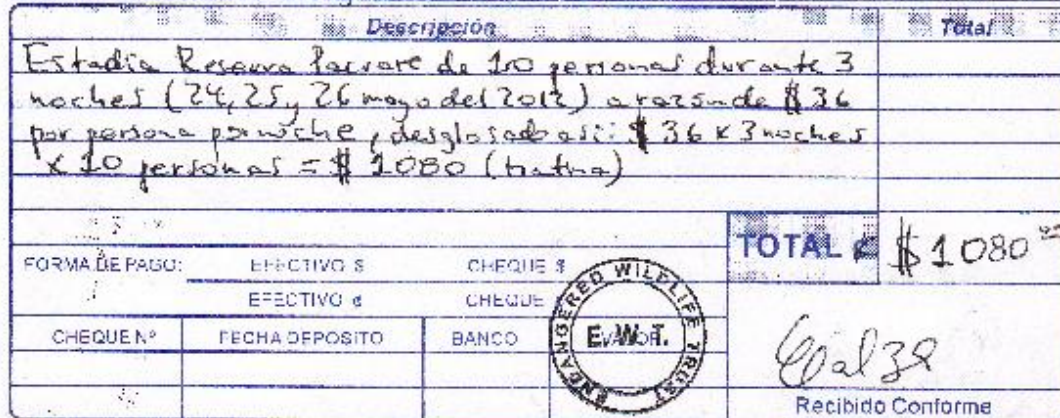 Descripción Total
Estadia Reserva Pacuare de 10 personas durante 3
noches (24, 25, y 26 mayo del 2012) a razon de $ 36
por persona por noche, desglosado asi: $ 36 x 3 noches
x 10 personas = $ 1080
TOTAL ¢ $ 1080
FORMA DE PAGO: EFECTIVO $ CHEQUE $
EFECTIVO ¢ CHEQUE
CHEQUE Nº FECHA DEPOSITO BANCO
ENDANGERED WILDLIFE TRUST
E.W.T.
Recibido Conforme